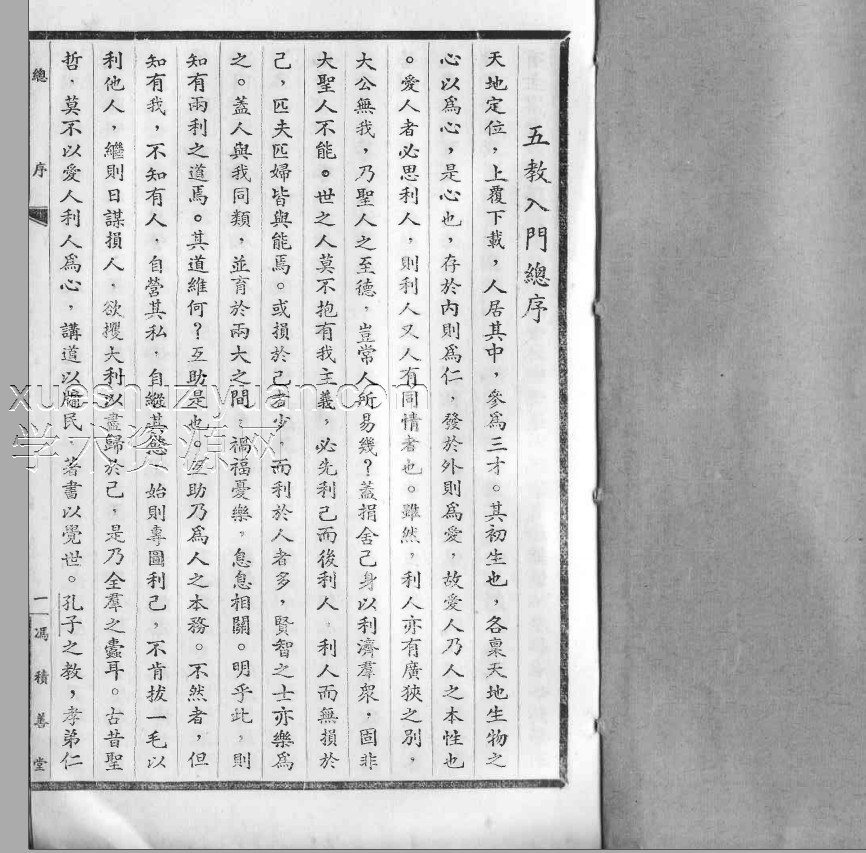 五教入門總序
天地定位，上覆下載，人居其中，參為三才。其初生也，各稟天地生物之
心以為心，是心也，存於內則為仁，發於外則為愛，故愛人乃人之本性也
。愛人者必思利人，則利人又人有同情者也。雖然，利人亦有廣狹之別，
大公無我，乃聖人之至德，豈常人所易幾？蓋捐舍己身以利濟羣衆，固非
大聖人不能。世之人莫不抱有我主義，必先利己而後利人，利人而無損於
己，匹夫匹婦皆與能焉。或損於己者少，而利於人者多，賢智之士亦樂為
之。蓋人與我同類，並育於兩大之間，禍福憂樂，息息相關。明乎此，則
知有兩利之道焉。其道維何？互助是也。互助乃為人之本務。不然者，但
知有我，不知有人，自營其私，自縱其慾，始則專圖利己，不肯拔一毛以
利他人，繼則日謀損人，欲攫大利以盡歸於己，是乃全羣之蠹耳。古昔聖
哲，莫不以愛人利人為心，講道以牖民，著書以覺世。孔子之教，孝弟仁
總序
一
馮積善堂
xueshuziyuan.com
学术资源网